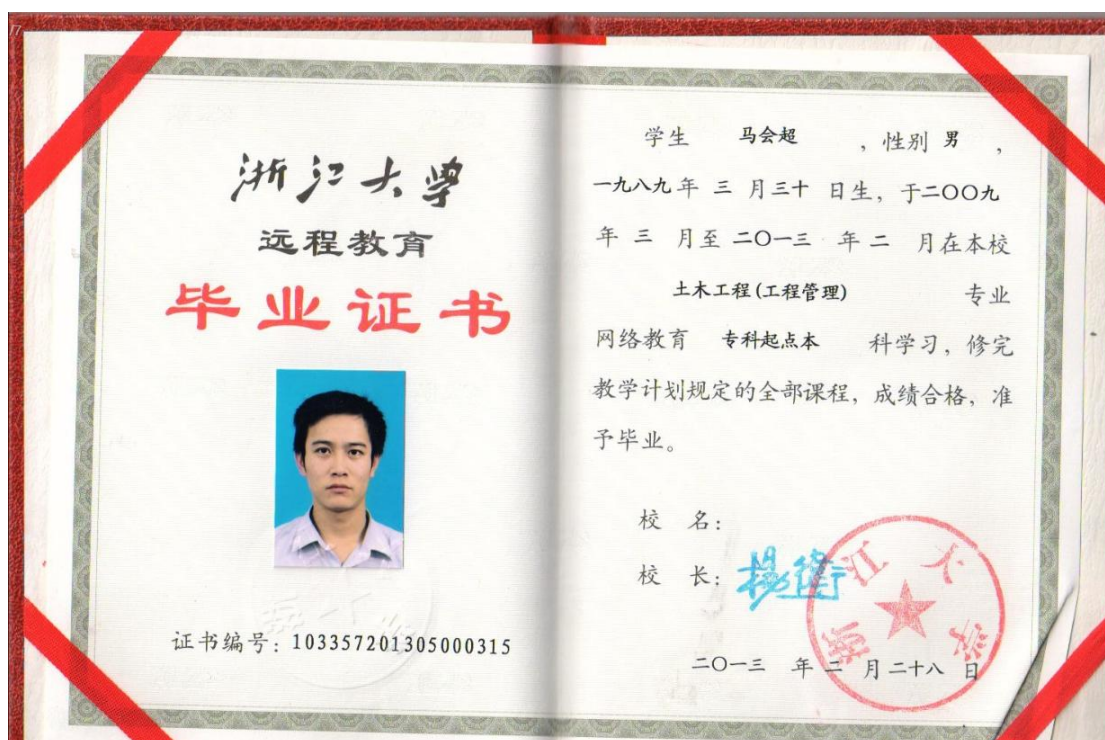 浙江大学
远程教育
毕业证书
证书编号：103357201305000315
学生 马会超 ，性别 男 ，
一九八九 年 三 月三十 日生，于二〇〇九
年 三 月至 二〇一三 年 二 月在本校
土木工程(工程管理) 专业
网络教育 专科起点本 科学习，修完
教学计划规定的全部课程，成绩合格，准
予毕业。
校 名：
校 长：杨卫
浙江大学
二〇一三 年 二 月二十八 日